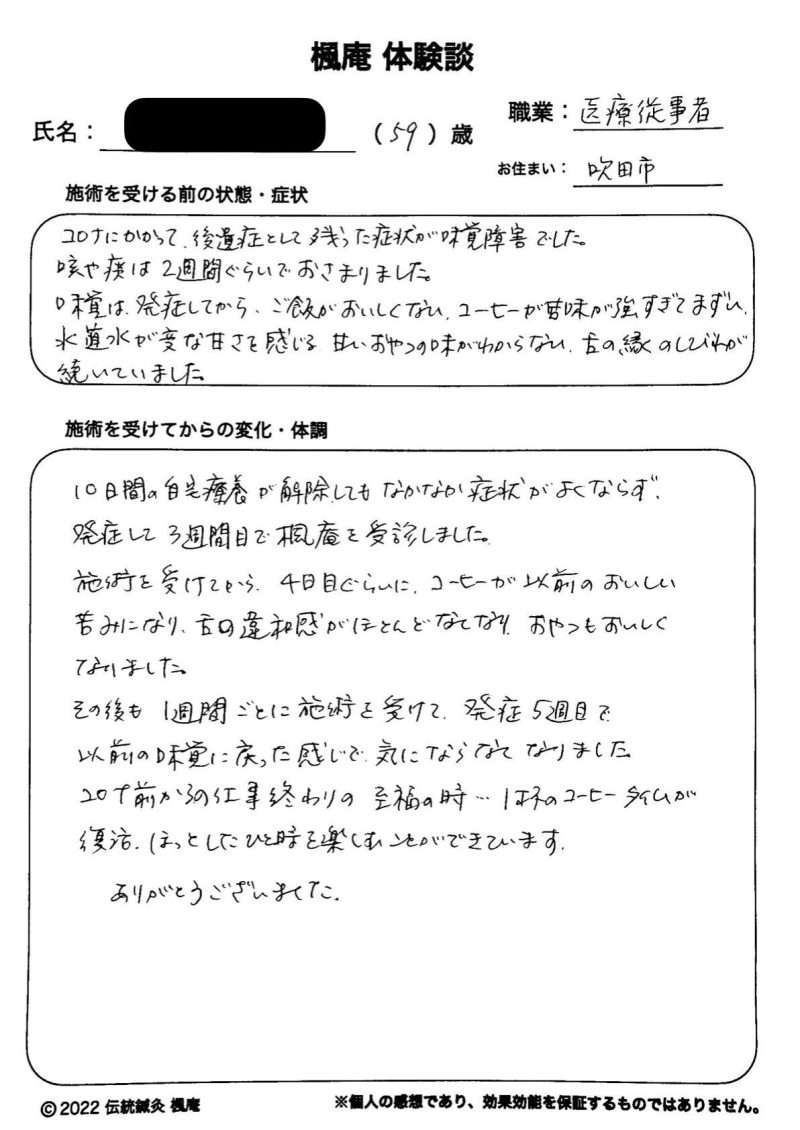 楓庵 体験談
氏名：　（59）歳
職業：医療従事者
お住まい：吹田市
施術を受ける前の状態・症状
コロナにかかって、後遺症として残った症状が味覚障害でした。
咳や痰は2週間ぐらいでおさまりました。
味覚は、発症してから、ご飯がおいしくない、コーヒーが甘味が強すぎてまずい、
水道水が変な甘さを感じる 甘いおやつの味がわからない、舌の縁のしびれが
続いていました。
施術を受けてからの変化・体調
10日間の自宅療養が解除してもなかなか症状がよくならず、
発症して3週間目で楓庵を受診しました。
施術を受けてから、4日目ぐらいに、コーヒーが以前のおいしい
苦みになり、舌の違和感がほとんどなくなり、おやつもおいしく
なりました。
その後も1週間ごとに施術を受けて、発症5週目で
以前の味覚に戻った感じで、気にならなくなりました。
コロナ前からの仕事終わりの至福の時…のコーヒータイムが
復活、ほっとしたひと時を楽しむことができています。
ありがとうございました。
©2022 伝統鍼灸 楓庵
※個人の感想であり、効果効能を保証するものではありません。